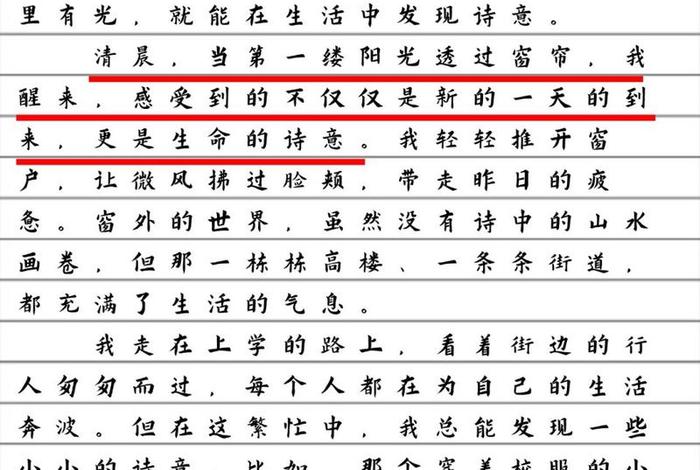 里有光，就能在生活中发现诗意。
清晨，当第一缕阳光透过窗帘，我
醒来，感受到的不仅仅是新的一天的到
来，更是生命的诗意。我轻轻推开窗
户，让微风拂过脸颊，带走昨日的疲
惫。窗外的世界，虽然没有诗中的山水
画卷，但那一栋栋高楼、一条条街道，
都充满了生活的气息。
我走在上学的路上，看着街边的行
人匆匆而过，每个人都在为自己的生活
奔波。但在这繁忙中，我总能发现一些
小小的诗意，比如，那个穿着校服的小